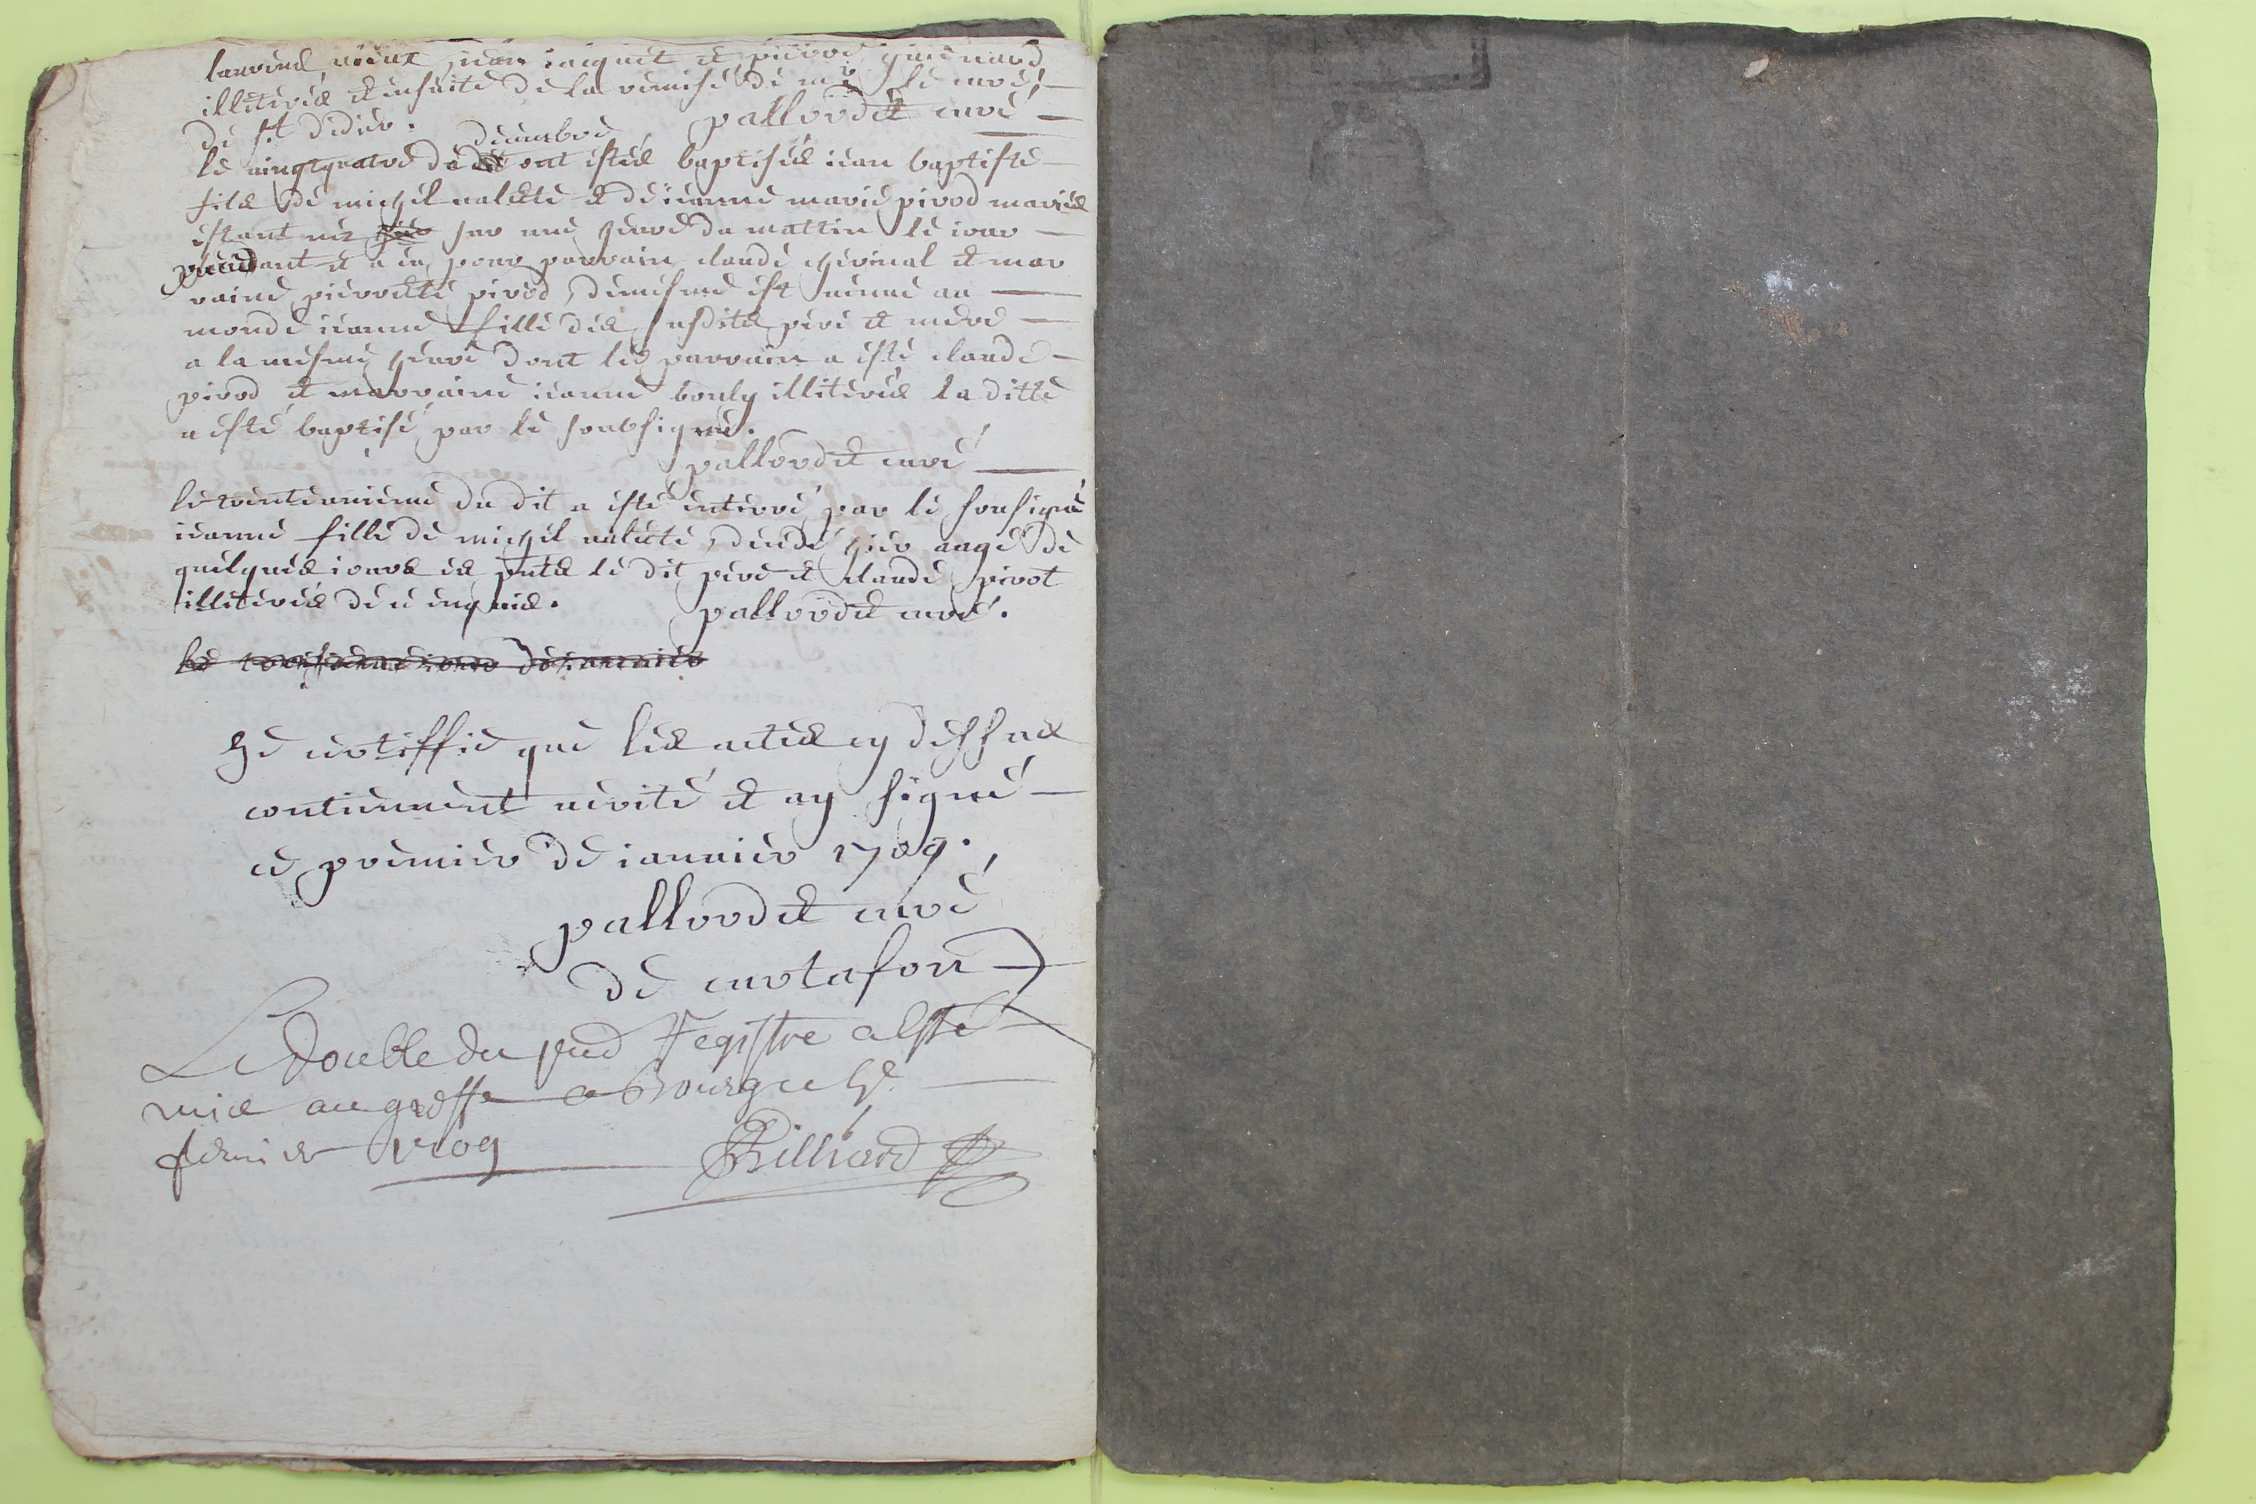 laurens ieune, iean iaquet et pierre guienard
illiterés et ensuite de la remise de mr le curé
de st didier. pallordet curé
decembre
le vingtquatre de dit ont estés baptisés iean baptiste
fils de michel valette et de ieanne marie pirod mariés
estant nez hier sur une heure du mattin le iour
precedant et a eu pour parrain claude chevenal et mar
raine pierrette pirod, demesme est venue au
monde ieanne fille des susdits pere et mere
a la mesme heure dont les parrain a esté claude
pirod et marraine ieanne bouly illiterés la ditte
a esté baptisé par le soubsigné.
pallordet curé
le trenteunieme du dit a esté enterré par le sousigné
ieanne fille de michel valette, decedé hier aagé de
quelques iours es pnts le dit pere et claude pirot
illiterés de ce enquis. pallordet curé.
le troisieme iour de ianvier
Je certiffie que les actes cy dessus
contiennent verité et ay signé
ce premier de ianvier 1709.
pallordet curé
de curtafon
Le double du pnt Registre a esté
mis au greffe a Bourg ce 5e
febvrier 1709 Billiard